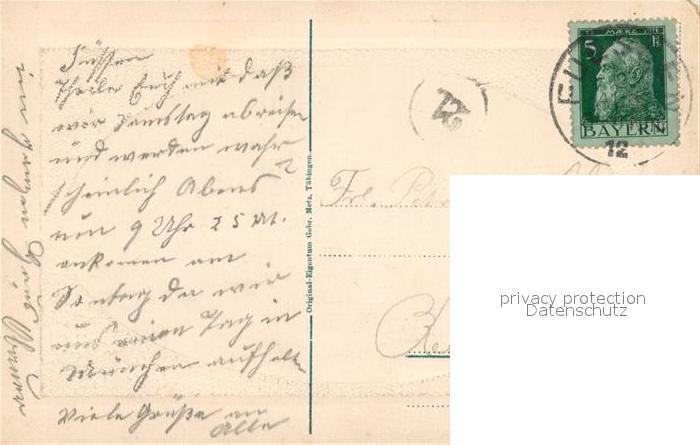 Füssen
Theile Euch mit daß
wir Samstag abreisen
und werden wahr
scheinlich Abens
um 9 Uhr 25 Mt.
ankomen am
Sontag da wir
uns einen Tag in
München aufhalten
Viele Grüße an
alle
Original-Eigentum Gebr. Metz, Tübingen.
5 MÄRZ Pf
BAYERN
12
Frl.
privacy protection
Datenschutz